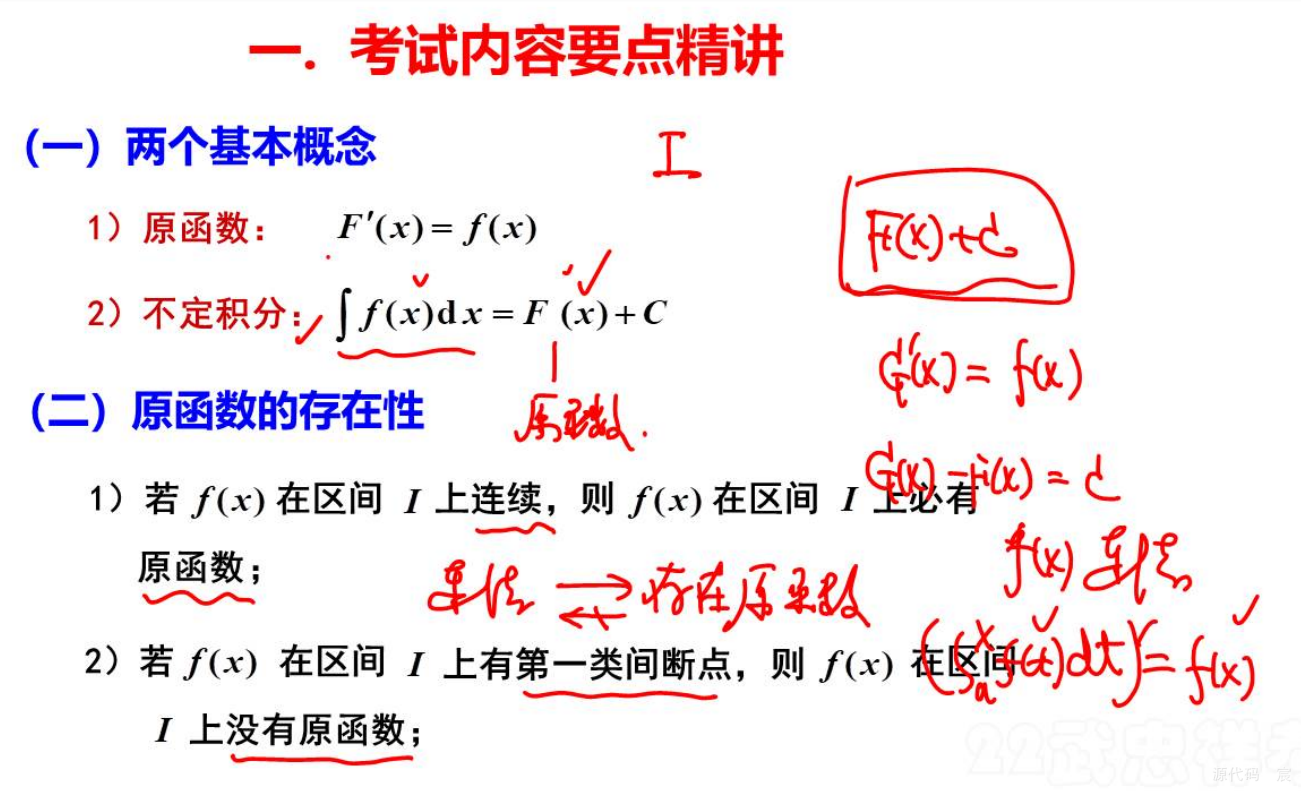 一. 考试内容要点精讲
（一）两个基本概念
I
1）原函数： F′(x) = f(x)
F(x)+C
2）不定积分： ∫ f(x)dx = F (x) + C
G′(x) = f(x)
（二）原函数的存在性
原函数.
G(x) - F(x) = C
1）若 f(x) 在区间 I 上连续，则 f(x) 在区间 I 上必有
原函数；
f(x) 连续
连续 ⇄ 存在原函数
(∫ₐˣ f(t)dt)′ = f(x)
2）若 f(x) 在区间 I 上有第一类间断点，则 f(x) 在区间
I 上没有原函数；
22武忠祥
源代码 宸